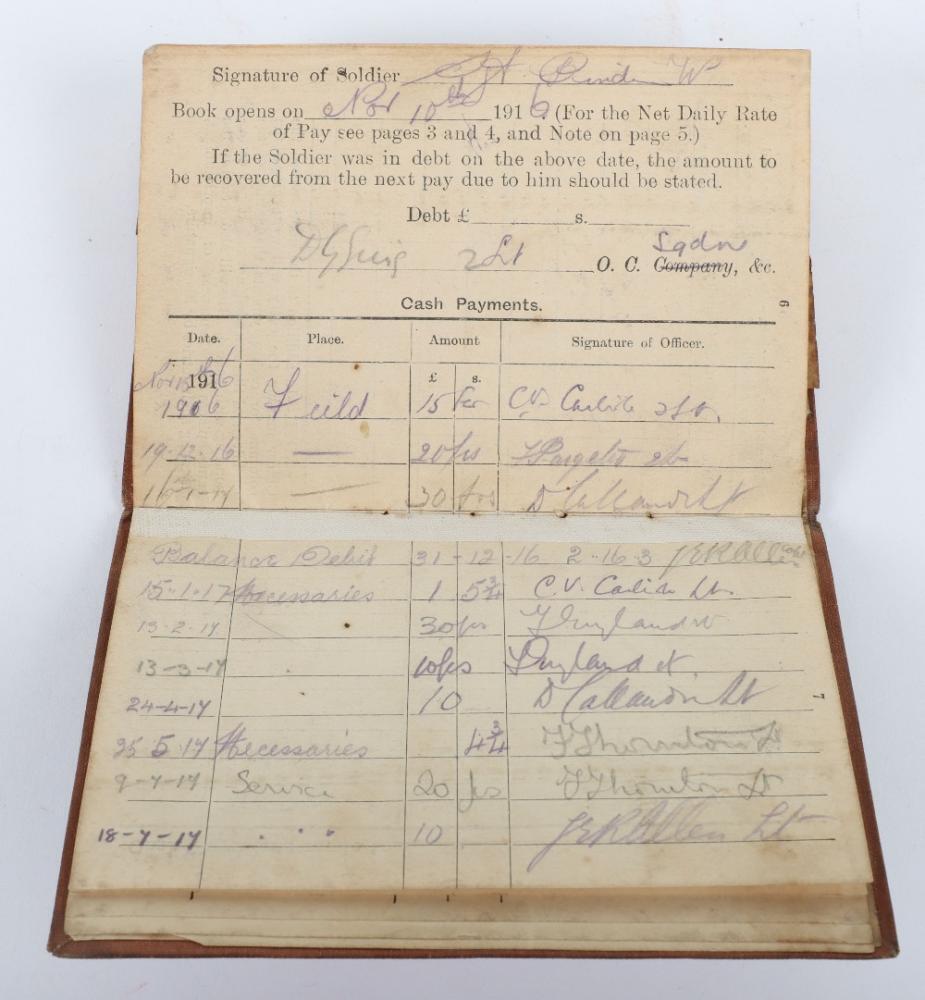 Signature of Soldier Sgt W
Book opens on Nov 10th 1916 (For the Net Daily Rate
of Pay see pages 3 and 4, and Note on page 5.)
If the Soldier was in debt on the above date, the amount to
be recovered from the next pay due to him should be stated.
Debt £ s.
2 Lt Sqdn
O. C. Company, &c.
6
Cash Payments.
Date. Place. Amount Signature of Officer.
£ s.
Nov 15th 1916
1916 Feild 15 fcs C.V. Carlisle 2 Lt
19-12-16 — 20 frs 2 Lt
16-1-17 — 30 frs D Callander Lt
Balance Debit 31-12-16 2-16-3 JERAllen
15-1-17 Necessaries 1 5¾ C.V. Carlisle Lt
13-2-17 30 frs F England Lt
13-3-17 10 frs England Lt
24-4-17 10 D Callander Lt
7
25-5-17 Necessaries 4¾ F Thornton Lt
9-7-17 Service 20 frs F Thornton Lt
18-7-17 " " " 10 JERAllen Lt